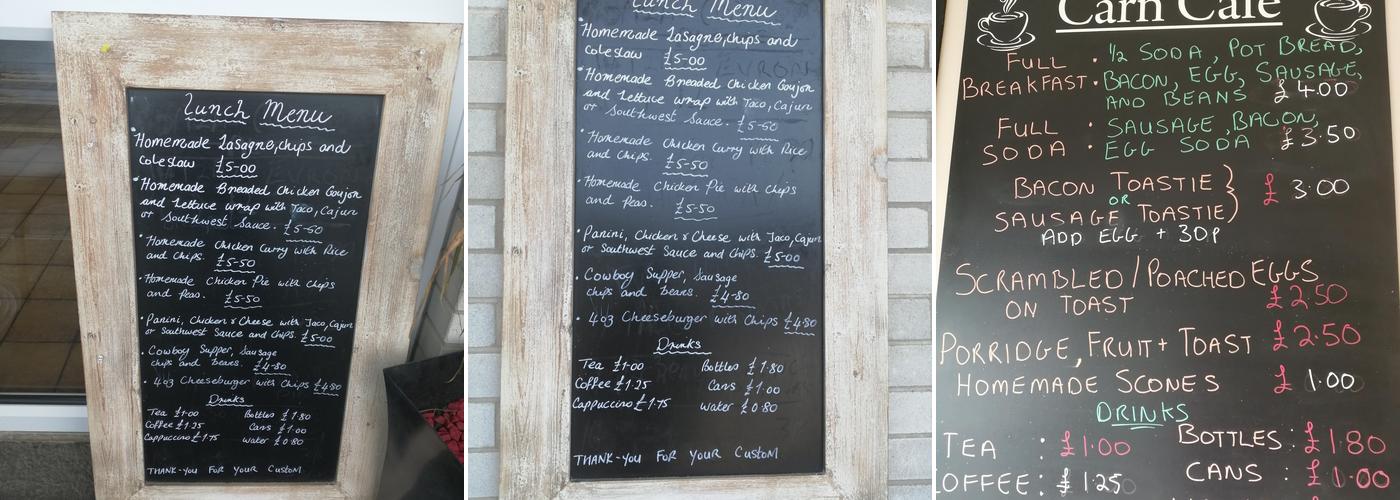 Lunch Menu
Homemade Lasagne, chips and
coleslaw £5-00
Homemade Breaded Chicken Goujon
and Lettuce wrap with Taco, Cajun
or Southwest Sauce. £5-50
Homemade Chicken Curry with Rice
and Chips. £5-50
Homemade Chicken Pie with chips
and Peas. £5-50
Panini, Chicken & Cheese with Taco, Cajun
or Southwest Sauce and Chips. £5-00
Cowboy Supper, Sausage
chips and beans. £4-80
4oz Cheeseburger with Chips £4-80
Drinks
Tea £1-00 Bottles £1-80
Coffee £1.25 Cans £1-00
Cappuccino £1-75 Water £0-80
THANK-YOU FOR YOUR CUSTOM
Lunch Menu
Homemade Lasagne, chips and
coleslaw £5-00
Homemade Breaded Chicken Goujon
and Lettuce wrap with Taco, Cajun
or Southwest Sauce. £5-50
Homemade Chicken Curry with Rice
and Chips. £5-50
Homemade Chicken Pie with chips
and Peas. £5-50
Panini, Chicken & Cheese with Taco, Cajun
or Southwest Sauce and Chips. £5-00
Cowboy Supper, Sausage
chips and beans. £4-80
4oz Cheeseburger with Chips £4-80
Drinks
Tea £1-00 Bottles £1-80
Coffee £1.25 Cans £1-00
Cappuccino £1-75 Water £0-80
THANK-YOU FOR YOUR CUSTOM
Carn Cafe
FULL BREAKFAST · 1/2 SODA, POT BREAD,
BACON, EGG, SAUSAGE,
AND BEANS £4.00
FULL SODA · SAUSAGE, BACON,
EGG SODA £3.50
BACON TOASTIE
OR
SAUSAGE TOASTIE £3.00
ADD EGG + 30P
SCRAMBLED / POACHED EGGS
ON TOAST £2.50
PORRIDGE, FRUIT + TOAST £2.50
HOMEMADE SCONES £1.00
DRINKS
TEA : £1.00 BOTTLES : £1.80
COFFEE : £1.25 CANS : £1.00